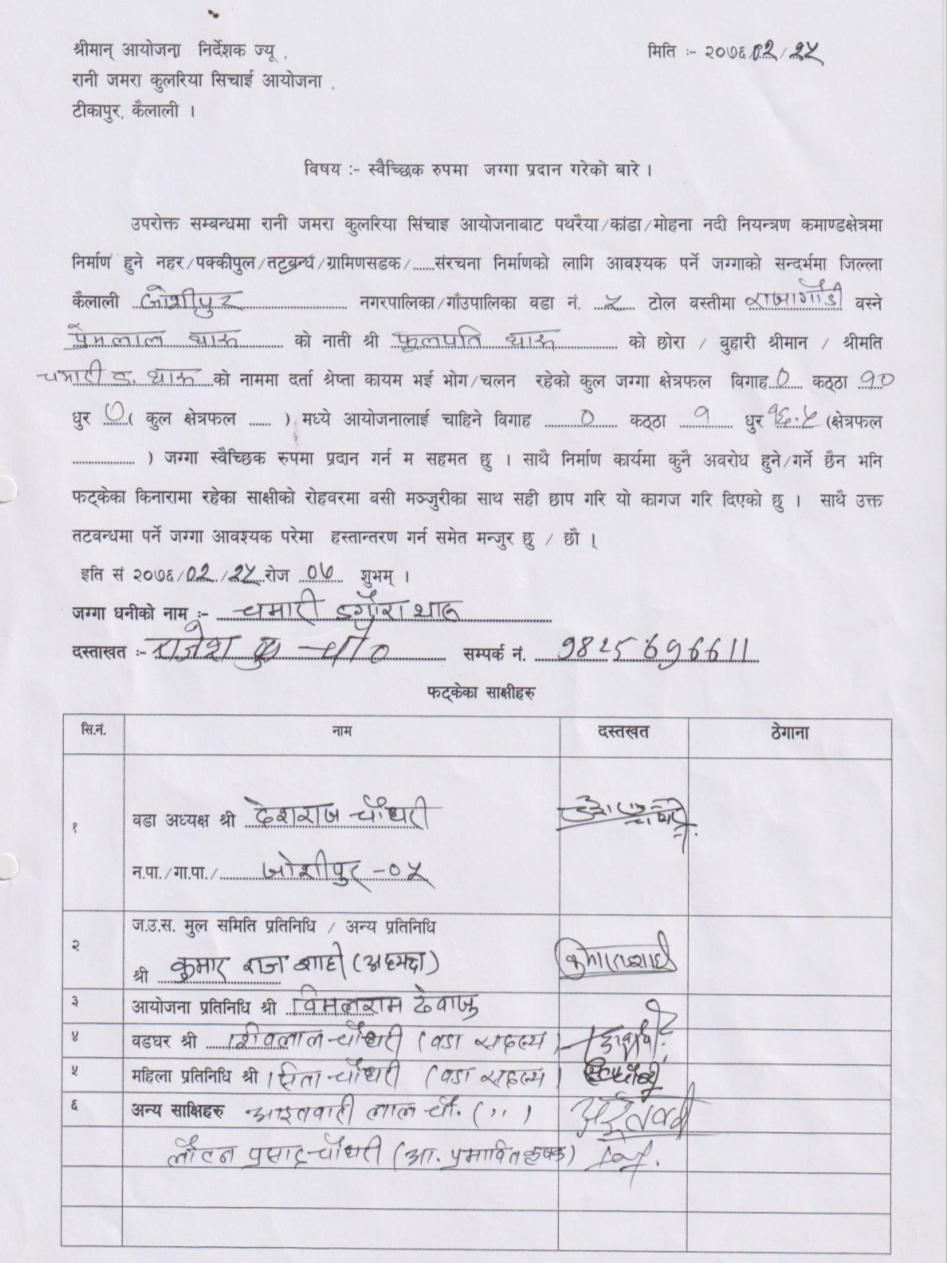 श्रीमान् आयोजना निर्देशक ज्यू .
मिति :- २०७६/०२/२५
रानी जमरा कुलरिया सिचाई आयोजना .
टीकापुर, कैलाली ।
विषय :- स्वैच्छिक रुपमा जग्गा प्रदान गरेको बारे ।
उपरोक्त सम्बन्धमा रानी जमरा कुलरिया सिंचाइ आयोजनाबाट पथरैया/कांडा/मोहना नदी नियन्त्रण कमाण्डक्षेत्रमा
निर्माण हुने नहर/पक्कीपुल/तटबन्ध/ग्रामिणसडक/......संरचना निर्माणको लागि आवश्यक पर्ने जग्गाको सन्दर्भमा जिल्ला
कैलाली जोशीपुर नगरपालिका/गाँउपालिका वडा नं. ५ टोल वस्तीमा वस्ने
प्रेमलाल थारू को नाती श्री फूलपति थारू को छोरा / बुहारी श्रीमान / श्रीमति
चमारी ड. थारू को नाममा दर्ता श्रेष्ता कायम भई भोग/चलन रहेको कुल जग्गा क्षेत्रफल विगाह ० कठ्ठा १०
धुर ० ( कुल क्षेत्रफल ...... ) मध्ये आयोजनालाई चाहिने विगाह ० कठ्ठा १ धुर १६.५ (क्षेत्रफल
............... ) जग्गा स्वैच्छिक रुपमा प्रदान गर्न म सहमत छु । साथै निर्माण कार्यमा कुनै अवरोध हुने/गर्ने छैन भनि
फट्केका किनारामा रहेका साक्षीको रोहवरमा वसी मञ्जुरीका साथ सही छाप गरि यो कागज गरि दिएको छु । साथै उक्त
तटवन्धमा पर्ने जग्गा आवश्यक परेमा हस्तान्तरण गर्न समेत मन्जुर छु / छौ ।
इति सं २०७६/०२/२५ रोज ०७ शुभम् ।
जग्गा धनीको नाम :- चमारी डगौरा थारू
दस्ताखत :- राजेश चौ० सम्पर्क नं. 9825696611
फट्केका साक्षीहरु
सि.नं. नाम दस्तखत ठेगाना
१ वडा अध्यक्ष श्री देशराज चौधरी
न.पा./गा.पा./ जोशीपुर -०५
२ ज.उ.स. मुल समिति प्रतिनिधि / अन्य प्रतिनिधि
श्री कुमार राज शाही (अध्यक्ष)
३ आयोजना प्रतिनिधि श्री विमलराम देवाजु
४ वडघर श्री शिवलाल चौधरी (वडा सदस्य)
५ महिला प्रतिनिधि श्री सिता चौधरी (वडा सदस्य)
६ अन्य साक्षिहरु आइतवारी लाल चौ. (,,)
लौटन प्रसाद चौधरी (आ. प्रभावित कृषक)